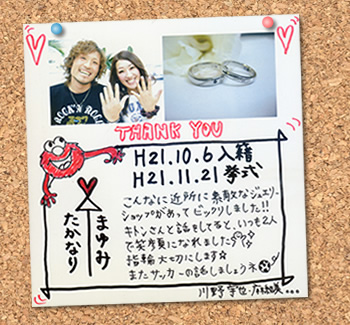 ROCK'N ROLL
THANK YOU
H21.10.6 入籍
H21.11.21 挙式
まゆみ
たかなり
こんなに近所に素敵なジュエリー
ショップがあってビックリしました!!
キトンさんと話をしてると、いつも2人
で笑顔になれました
指輪大切にします☆
またサッカーの話しましょうネ
川野